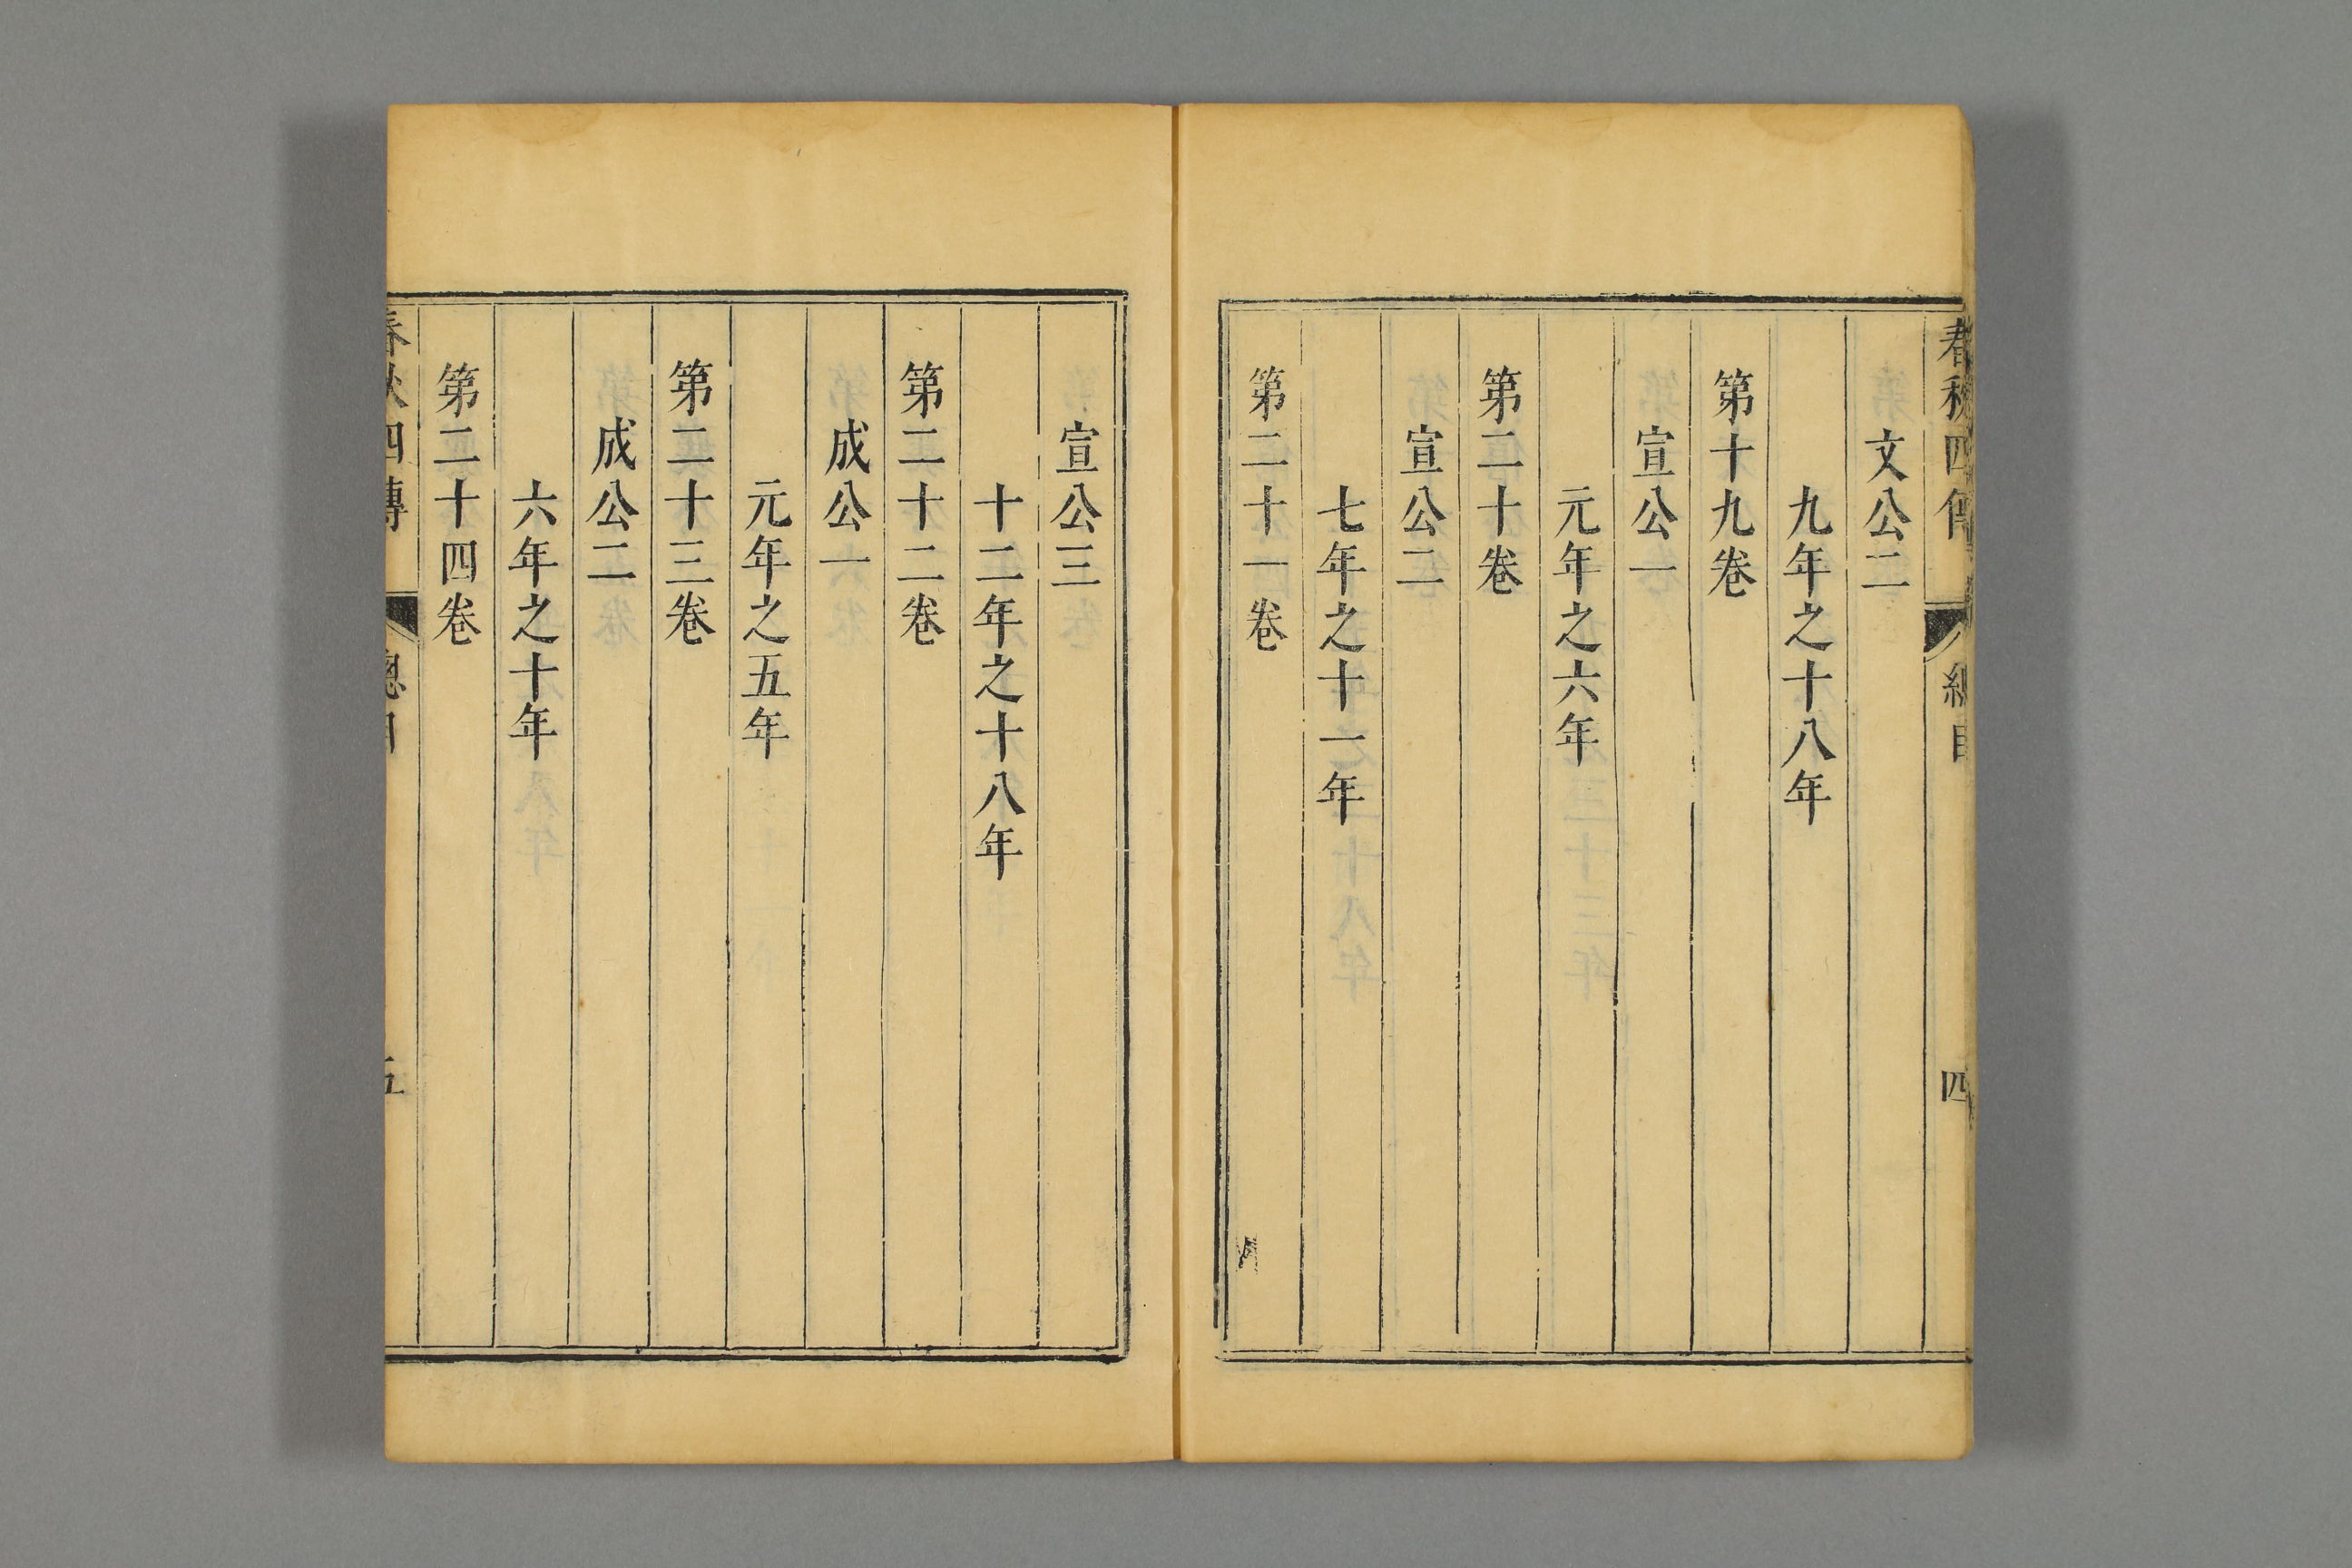 春秋四傳 總目 四
文公二
九年之十八年
第十九卷
宣公一
元年之六年
第二十卷
宣公二
七年之十一年
第二十一卷
宣公三
十二年之十八年
第二十二卷
成公一
元年之五年
第二十三卷
成公二
六年之十年
第二十四卷
春秋四傳 總目 五